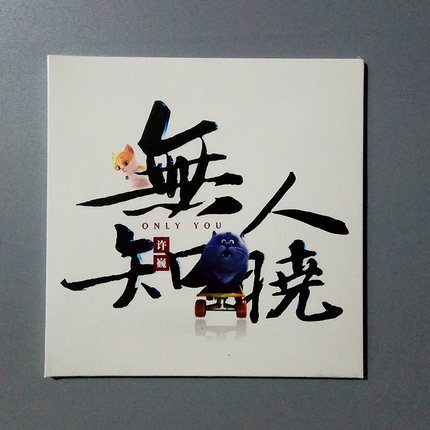 無人
ONLY YOU
知曉
许巍